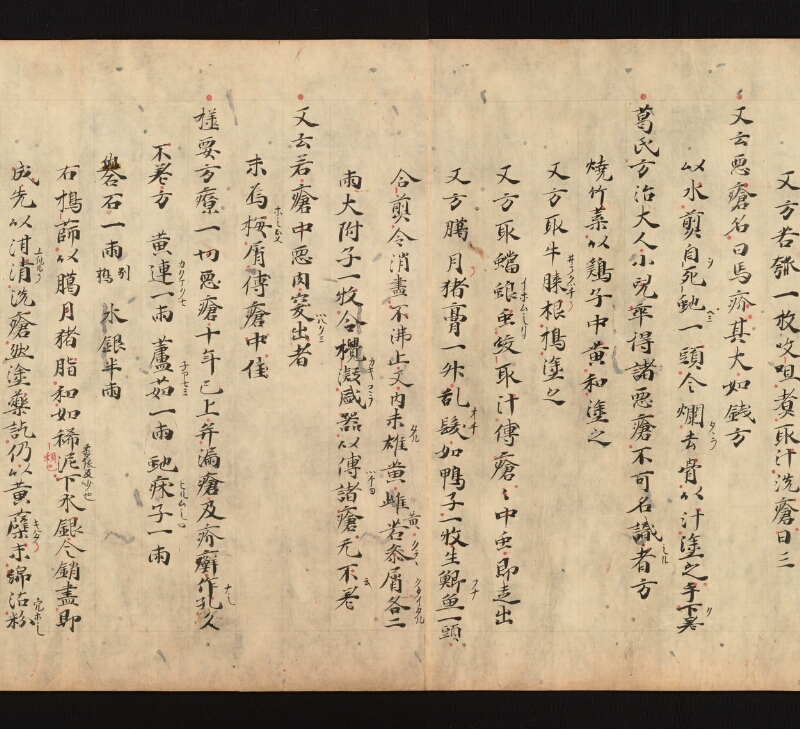 又方苦瓠一枚㕮咀煮取汁洗瘡日三
又云惡瘡名曰馬疥其大如錢方
以水煎自死虵一頭令爛去骨以汁塗之手下差
葛氏方治大人小兒卒得諸惡瘡不可名識者方
燒竹葉以鷄子中黃和塗之
又方取牛膝根搗塗之
又方取蟷蜋虫絞取汁傅瘡々中虫即走出
又方臈月猪膏一升乱髮如鴨子一枚生鯽魚一頭
合煎令消盡不沸止又内末雄黃雌 苦參屑各二
兩大附子一枚令攪凝咸器以傅諸瘡无不差
又云若瘡中惡肉突出者
末烏梅屑傅瘡中佳
極要方療一切惡瘡十年已上并漏瘡及疥癬作孔久
不差方 黃連一兩 蘆茹一兩 虵床子一兩
礜石一兩別搗 水銀半兩
右搗篩以臈月猪脂和如稀泥下水銀令銷盡即
成先以泔清洗瘡然塗藥訖仍以黃蘗末綿沾粉